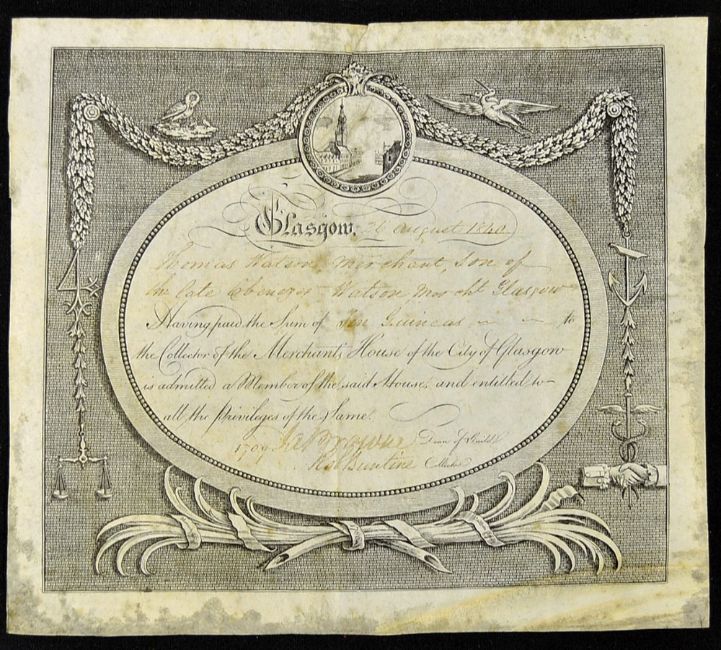 Glasgow, 26 August 1840
Thomas Watson Merchant, Son of
the late Ebenezer Watson Mercht. Glasgow
Having paid the Sum of Ten Guineas to
the Collector of the Merchants House of the City of Glasgow
is admitted a Member of the said House, and entitled to
all the Privileges of the Same.
Brown Dean of Guild
Buntine Collector